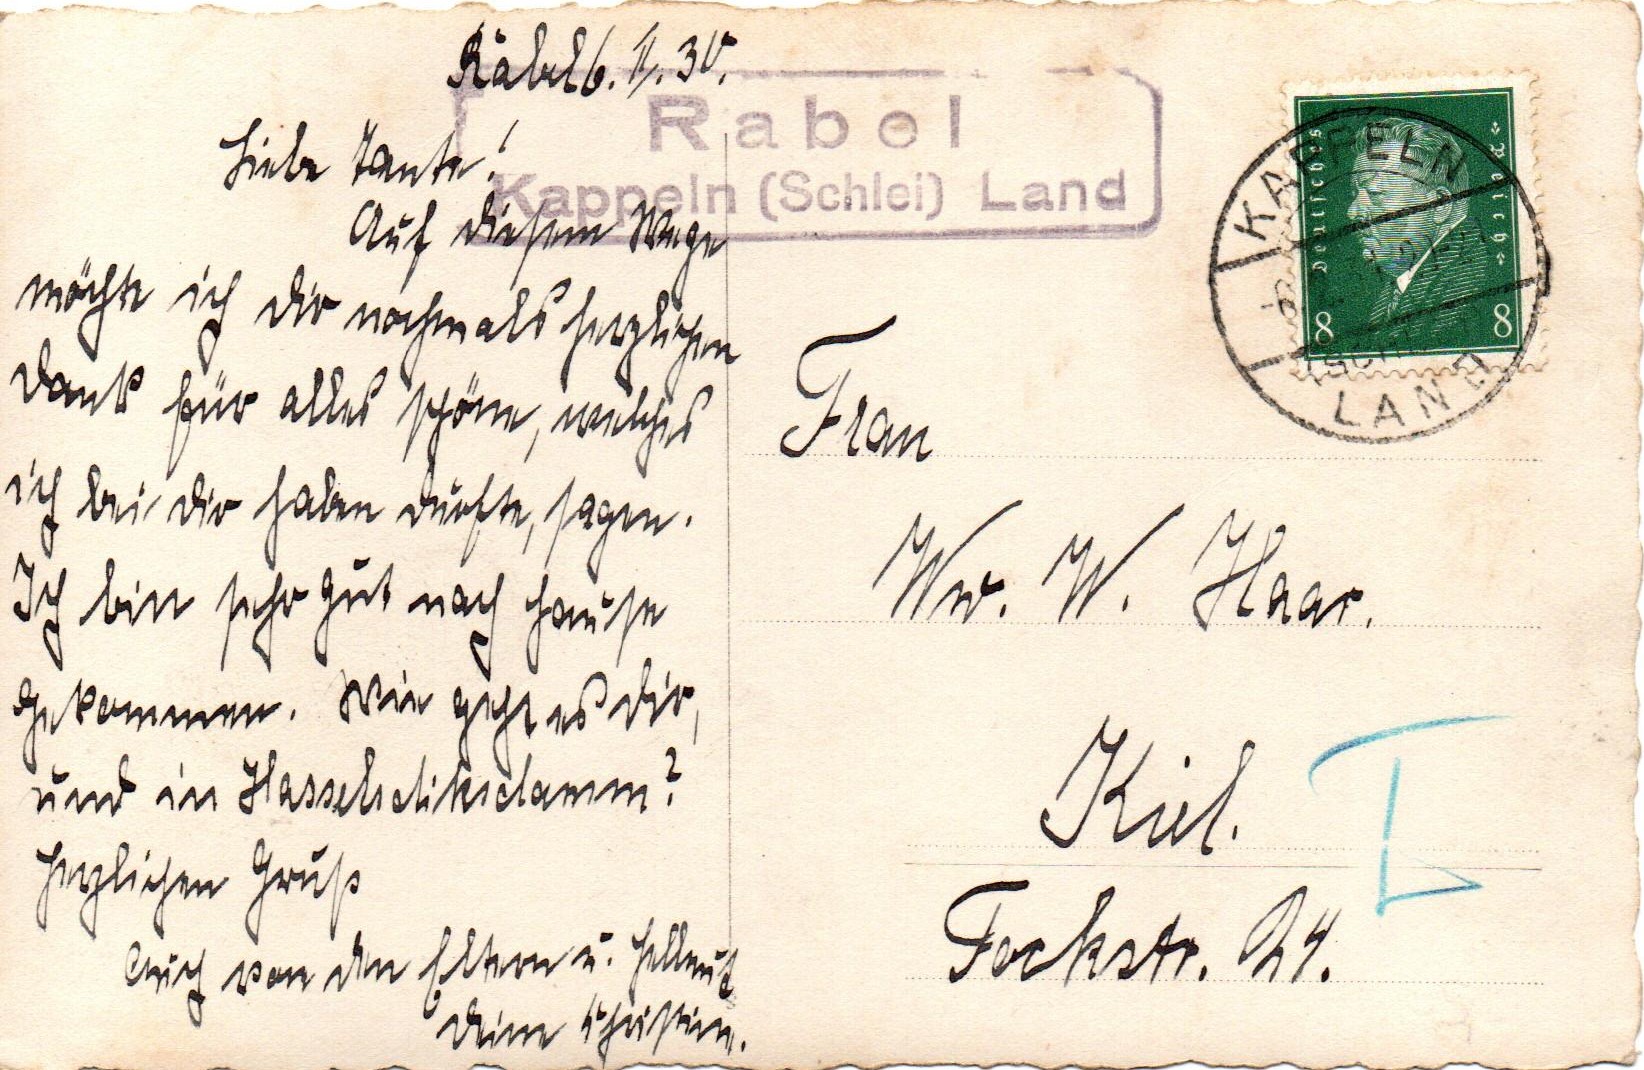 Rabel 6. II. 30.
Rabel
Kappeln (Schlei) Land
Liebe Tante!
Auf diesem Wege
möchte ich dir nochmals herzlichen
Dank für alles schöne, welches
ich bei dir haben durfte, sagen.
Ich bin sehr gut nach Hause
gekommen. Wie geht es dir,
und in Hasseldieksdamm?
Herzlichen Gruß
auch von den Eltern u. Hellmut
Deine Christine.
Deutsches Reich
8 8
KAPPELN
LAND
Frau
Ww. W. Haar.
Kiel.
Fockstr. 24.